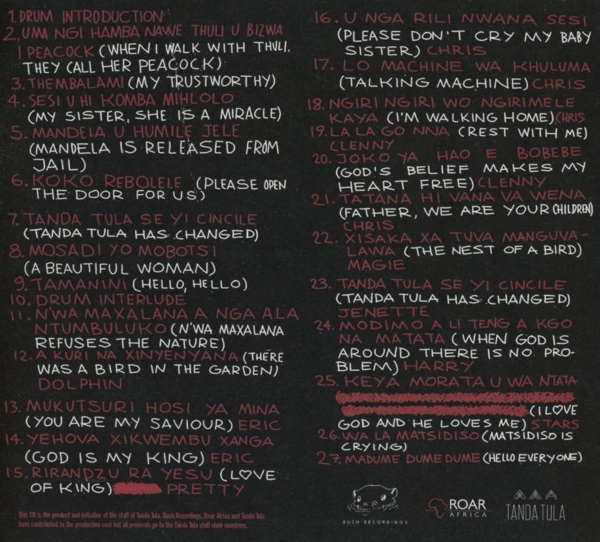 1. DRUM INTRODUCTION
2. UMA NGI HAMBA NAWE THULI U BIZWA
I PEACOCK (WHEN I WALK WITH THULI,
THEY CALL HER PEACOCK)
3. THEMBALAMI (MY TRUSTWORTHY)
4. SESI U HI KOMBA MIHLOLO
(MY SISTER, SHE IS A MIRACLE)
5. MANDELA U HUMILE JELE
(MANDELA IS RELEASED FROM
JAIL)
6. KOKO REBOLELE (PLEASE OPEN
THE DOOR FOR US)
7. TANDA TULA SE YI CINCILE
(TANDA TULA HAS CHANGED)
8. MOSADI YO MOBOTSI
(A BEAUTIFUL WOMAN)
9. TAMANINI (HELLO, HELLO)
10. DRUM INTERLUDE
11. N'WA MAXALANA A NGA ALA
NTUMBULUKO (N'WA MAXALANA
REFUSES THE NATURE)
12. A KURI NA XINYENYANA (THERE
WAS A BIRD IN THE GARDEN)
DOLPHIN
13. MUKUTSURI HOSI YA MINA
(YOU ARE MY SAVIOUR) ERIC
14. YEHOVA XIKWEMBU XANGA
(GOD IS MY KING) ERIC
15. RIRANDZU RA YESU (LOVE
OF KING) PRETTY
This CD is the product and initiative of the staff of Tanda Tula. Bush Recordings, Roar Africa and Tanda Tula
have contributed to the production cost but all proceeds go to the Tanda Tula staff choir members.
16. U NGA RILI NWANA SESI
(PLEASE DON'T CRY MY BABY
SISTER) CHRIS
17. LO MACHINE WA KHULUMA
(TALKING MACHINE) CHRIS
18. NGIRI NGIRI WO NGIRIMELE
KAYA (I'M WALKING HOME) CHRIS
19. LA LA GO NNA (REST WITH ME)
CLENNY
20. JOKO YA HAO E BOBEBE
(GOD'S BELIEF MAKES MY
HEART FREE) CLENNY
21. TATANA HI VANA VA WENA
(FATHER, WE ARE YOUR CHILDREN)
CHRIS
22. XISAKA XA TUVA MANGUVA-
LAWA (THE NEST OF A BIRD)
MAGIE
23. TANDA TULA SE YI CINCILE
(TANDA TULA HAS CHANGED)
JENETTE
24. MODIMO A LI TENG A KGO
NA MATATA (WHEN GOD IS
AROUND THERE IS NO PRO-
BLEM) HARRY
25. KEYA MORATA U WA NTATA
(I LOVE
GOD AND HE LOVES ME) STARS
26. WA LA MATSIDISO (MATSIDISO IS
CRYING)
27. MADUME DUME DUME (HELLO EVERYONE)
BUSH RECORDINGS
ROAR
AFRICA
TANDA TULA